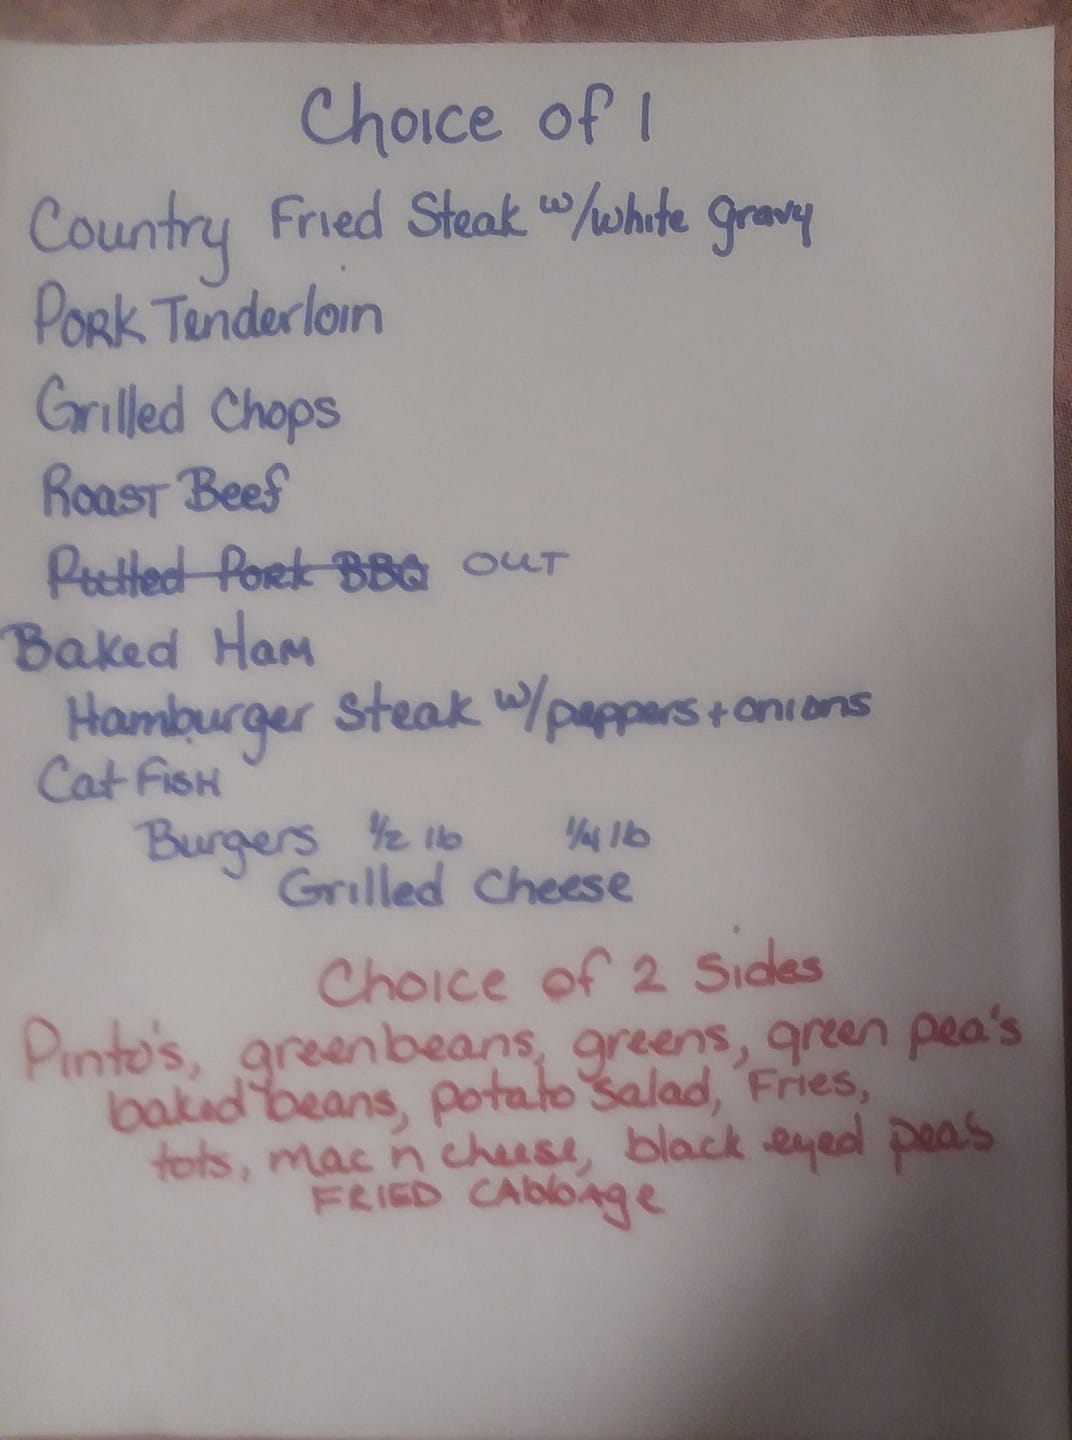 Choice of 1
Country Fried Steak w/white gravy
Pork Tenderloin
Grilled Chops
Roast Beef
Pulled Pork BBQ OUT
Baked Ham
Hamburger Steak w/peppers + onions
Cat Fish
Burgers 1/2 lb 1/4 lb
Grilled Cheese
Choice of 2 Sides
Pinto's, greenbeans, greens, green pea's
baked beans, potato salad, Fries,
tots, mac n cheese, black eyed pea's
FRIED CAbbAge